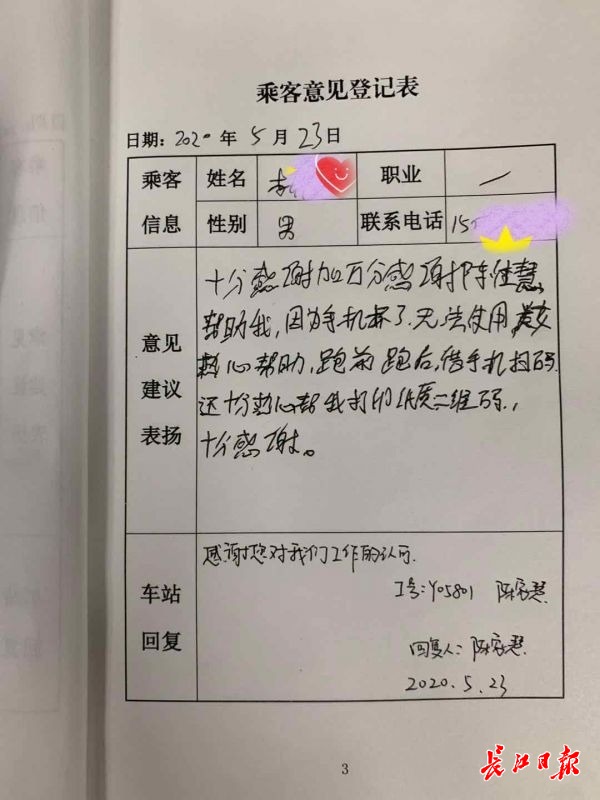 乘客意见登记表
日期：2020 年 5 月 23 日
乘客 姓名 职业 一
信息 性别 男 联系电话 15
意见
建议
表扬
十分感谢加万分感谢陈佳慧
帮助我，因为手机坏了无法使用，
热心帮助，跑前跑后，借手机扫码
还十分热心帮我打印纸质二维码，
十分感谢。
车站
回复
感谢您对我们工作的认可.
工号：Y05801 陈家慧
回复人：陈家慧
2020.5.23
3
长江日报